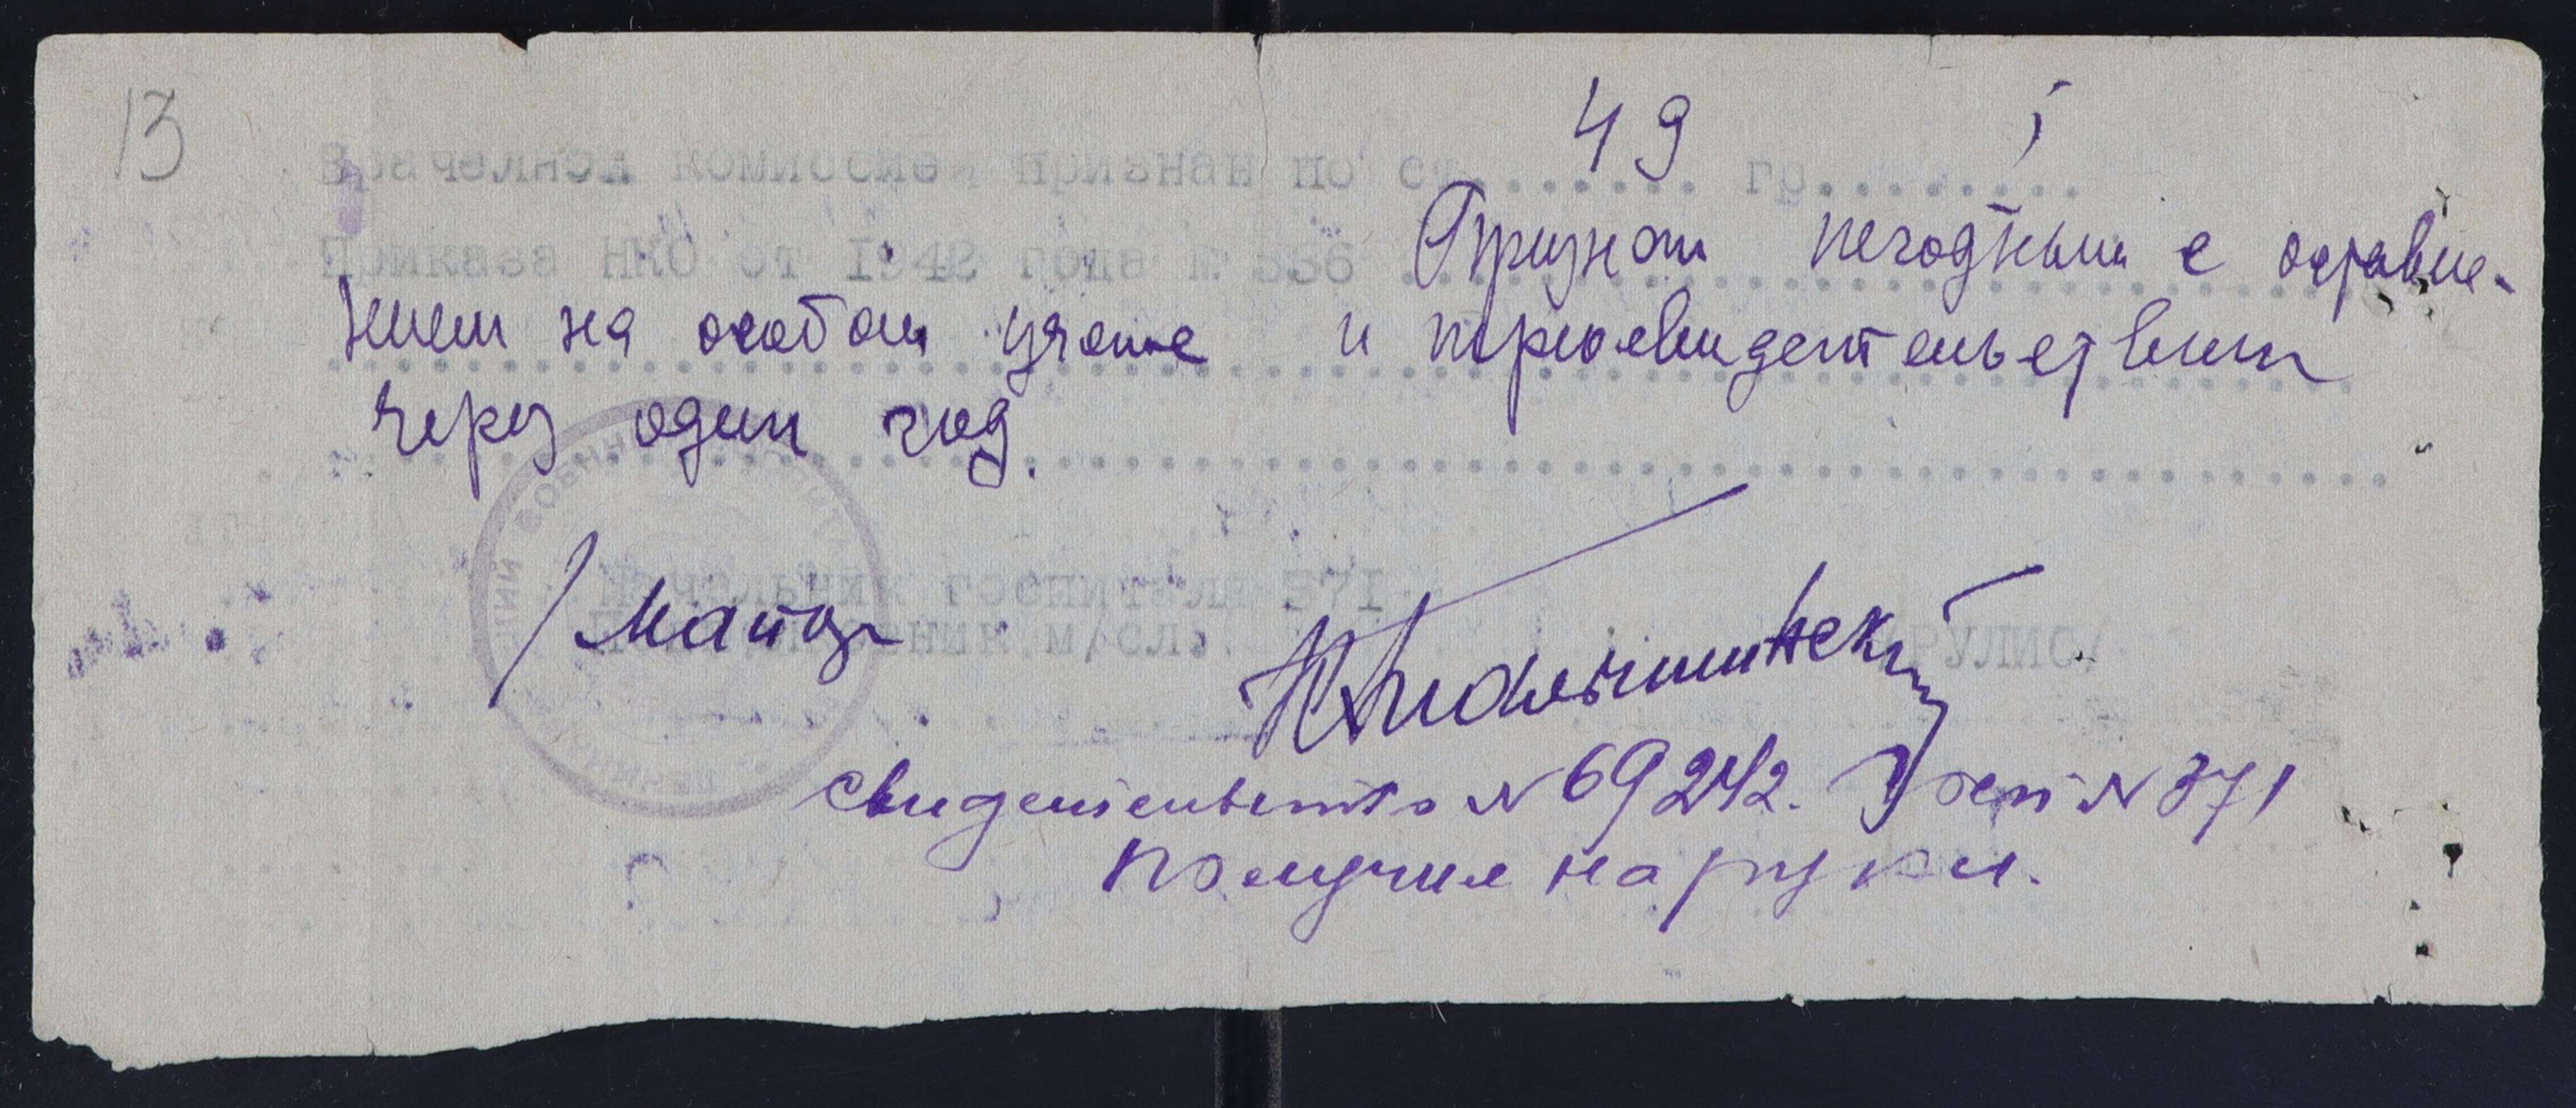 13
49 I
Врачебной комиссией признан по ст........ гр.........
Приказа НКО от 1942 года № 336 Признан негодным с оставле-
нием на особом учете и переосвидетельствием
через один год.
Начальник госпиталя 371
Майор
м/сл.
Свидетельство № 69242. Госп № 371
получил на руки.